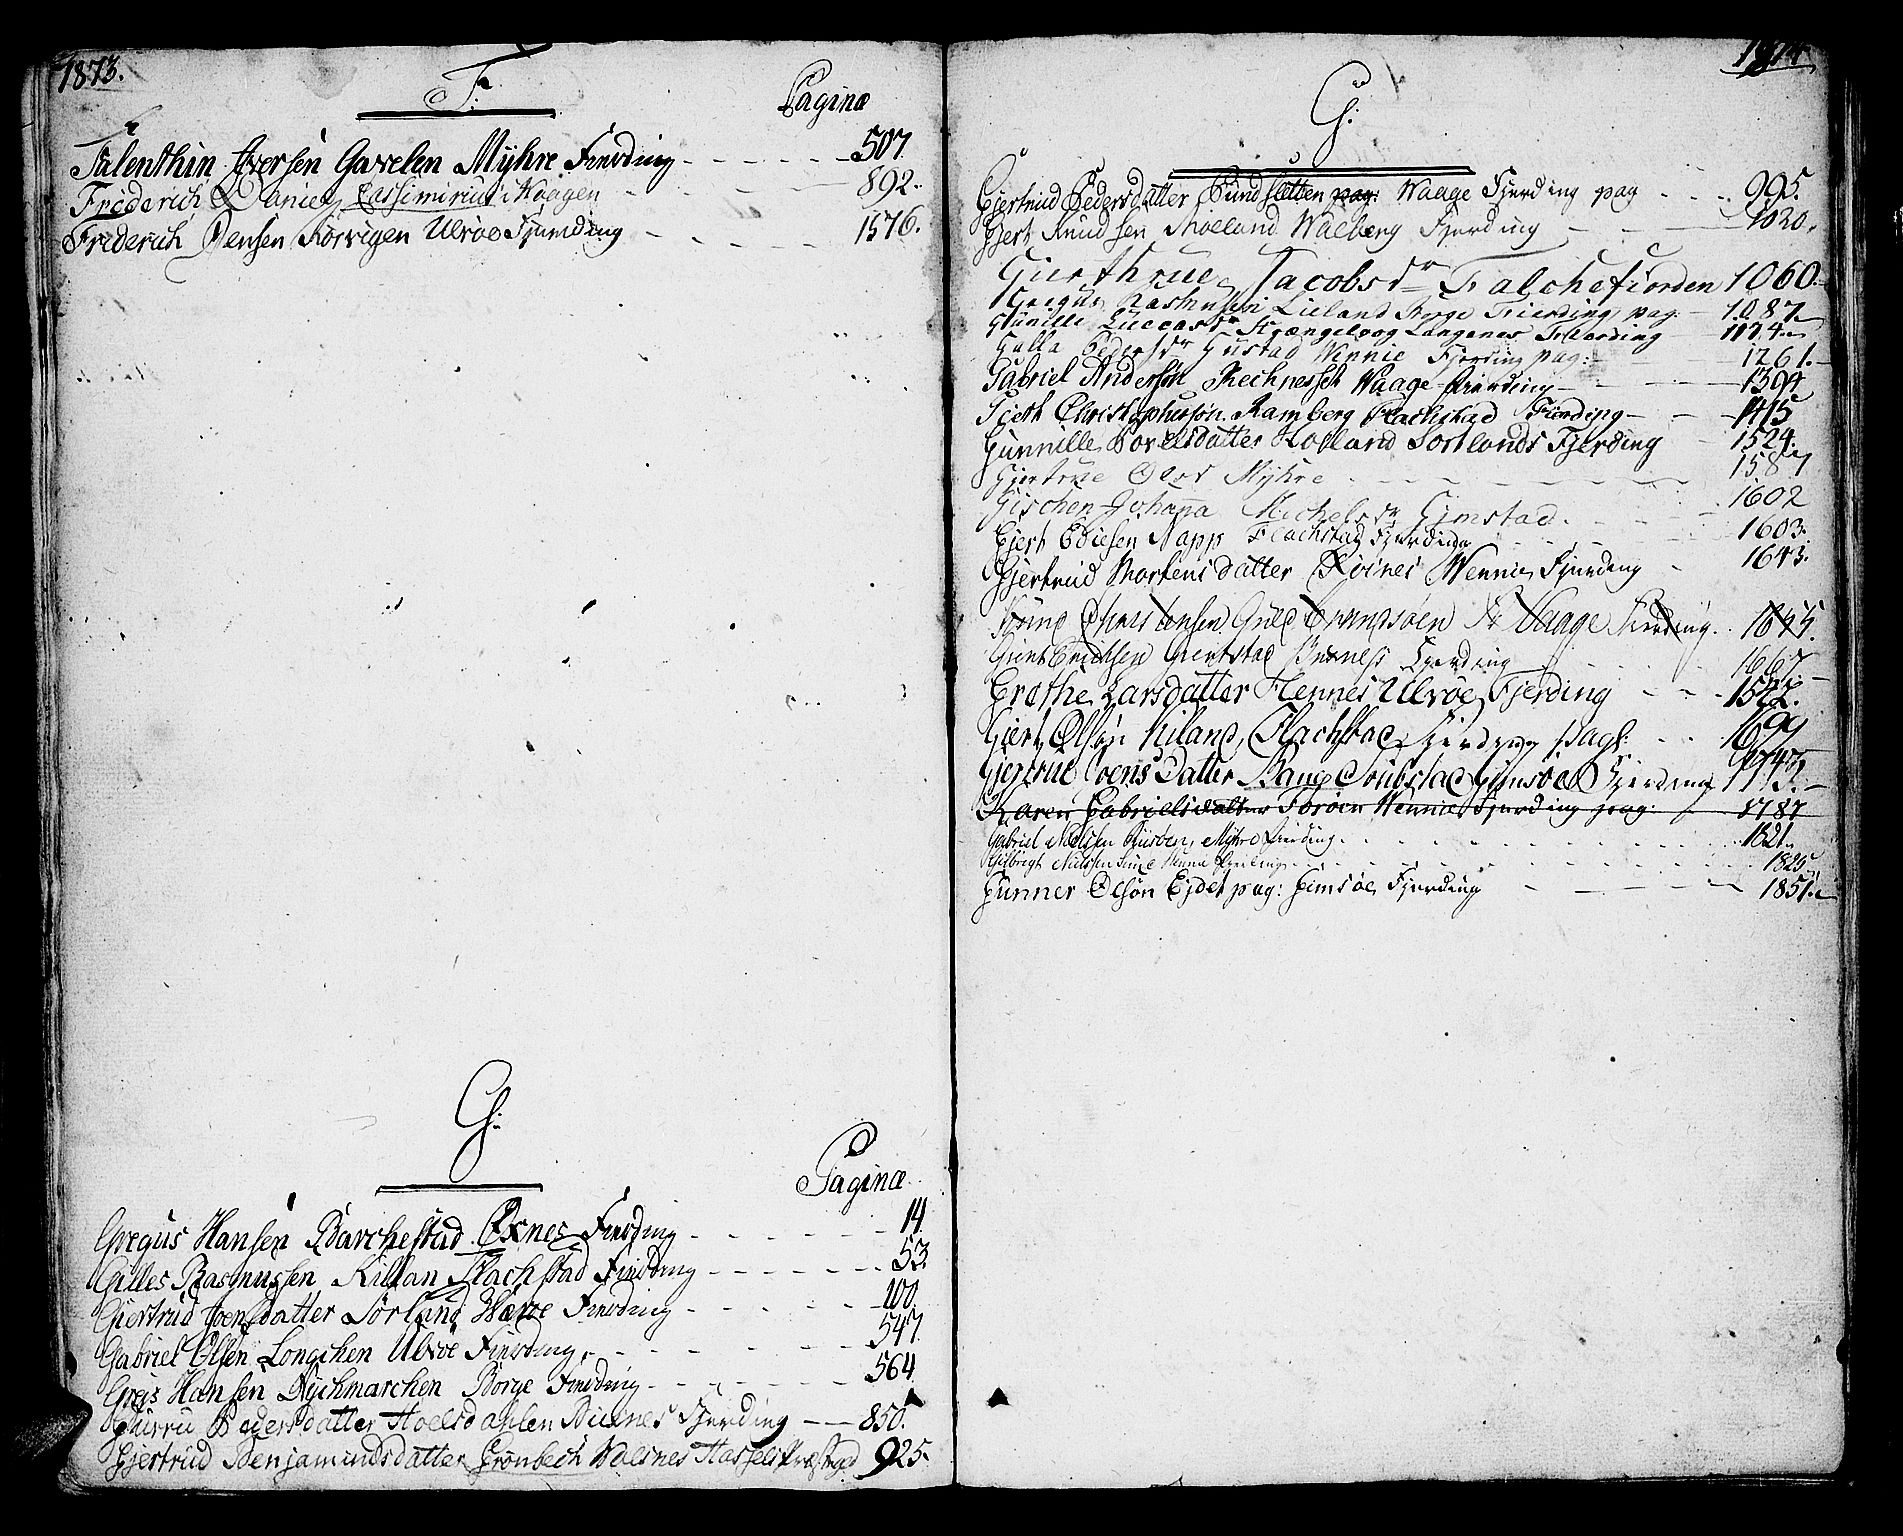 1873.
F:
Paginæ
Falenthin Iversen Gavelen Myhre Fierding 507.
Friderich Daniel Cassimirus i Waagen 892.
Friderich Jensen Korvigen Ulvøe Fjerding 1576.
G:
Paginæ
Gregus Hansen Barchestad Øxnes Fierding 14.
Gilles Rasmussen Killan Flachstad Fierding 53.
Giertrud Joensdatter Sørland Værøe Fierding 100.
Gabriel Olsen Longchen Ulvøe Fierding 547.
Gregs Hansen Dychmarchen Borge Fierding 564.
Pedersdatter Hoelsdahlen Buxnes Fjerding 850.
Gjertrud Benjamindsdatter Grønbech Nolsnes Hassels Præstegd 925.
1874
G:
Gjertrud Pedersdatter Sundsletten pag: Waage Fjerding pag 995.
Gjert Knudsen Moeland Walberg Fjerding 1020.
Gierthrue Jacobsdr Falchefiorden 1060.
Gregus Rasmusen Lieland Borge Fierding pag 1087.
Gunille Luccasdr Stængelvog Langenes Fierding 1174.
Gulla Pedersdr Gustad Wennie Fjerding pag: 1261.
Gabriel Andersøn Rechnessch Waage Fierding 1394
Gieth Christophersøn Ramberg Flachstad Fierding 1415
Gunnille Povelsdatter Holland Sortlands Fjerding 1524.
Gjertrue Olsd Myhre 1587
Gischen Johana Michelsdr Gimstad 1602
Gjert Ediesen Napp Flachstad Fjerding 1603.
Gjertrud Mortensdatter Røines Wennie Fjerding 1643.
Christensen Waage Fierding 1645.
Giert Erichsen Giertstad Buxnes Fjerding 1667.
Grethe Larsdatter Hennes Ulvøe Fjerding 1522.
Giert Olsøn Kiland, Flachstad Fjerding pag: 1699
Gjertrue Joens Datter Gimsøe Fjerding 1742.
Karen Gabrielsdatter Forøen Wennie Fjerding pag: 1787
Gabriel Nielssen Myhre Fierding 1821.
Nielssen Fierding 1825
Gunner Olsøn Ejdet pag: Gimsøe Fjerding 1851.